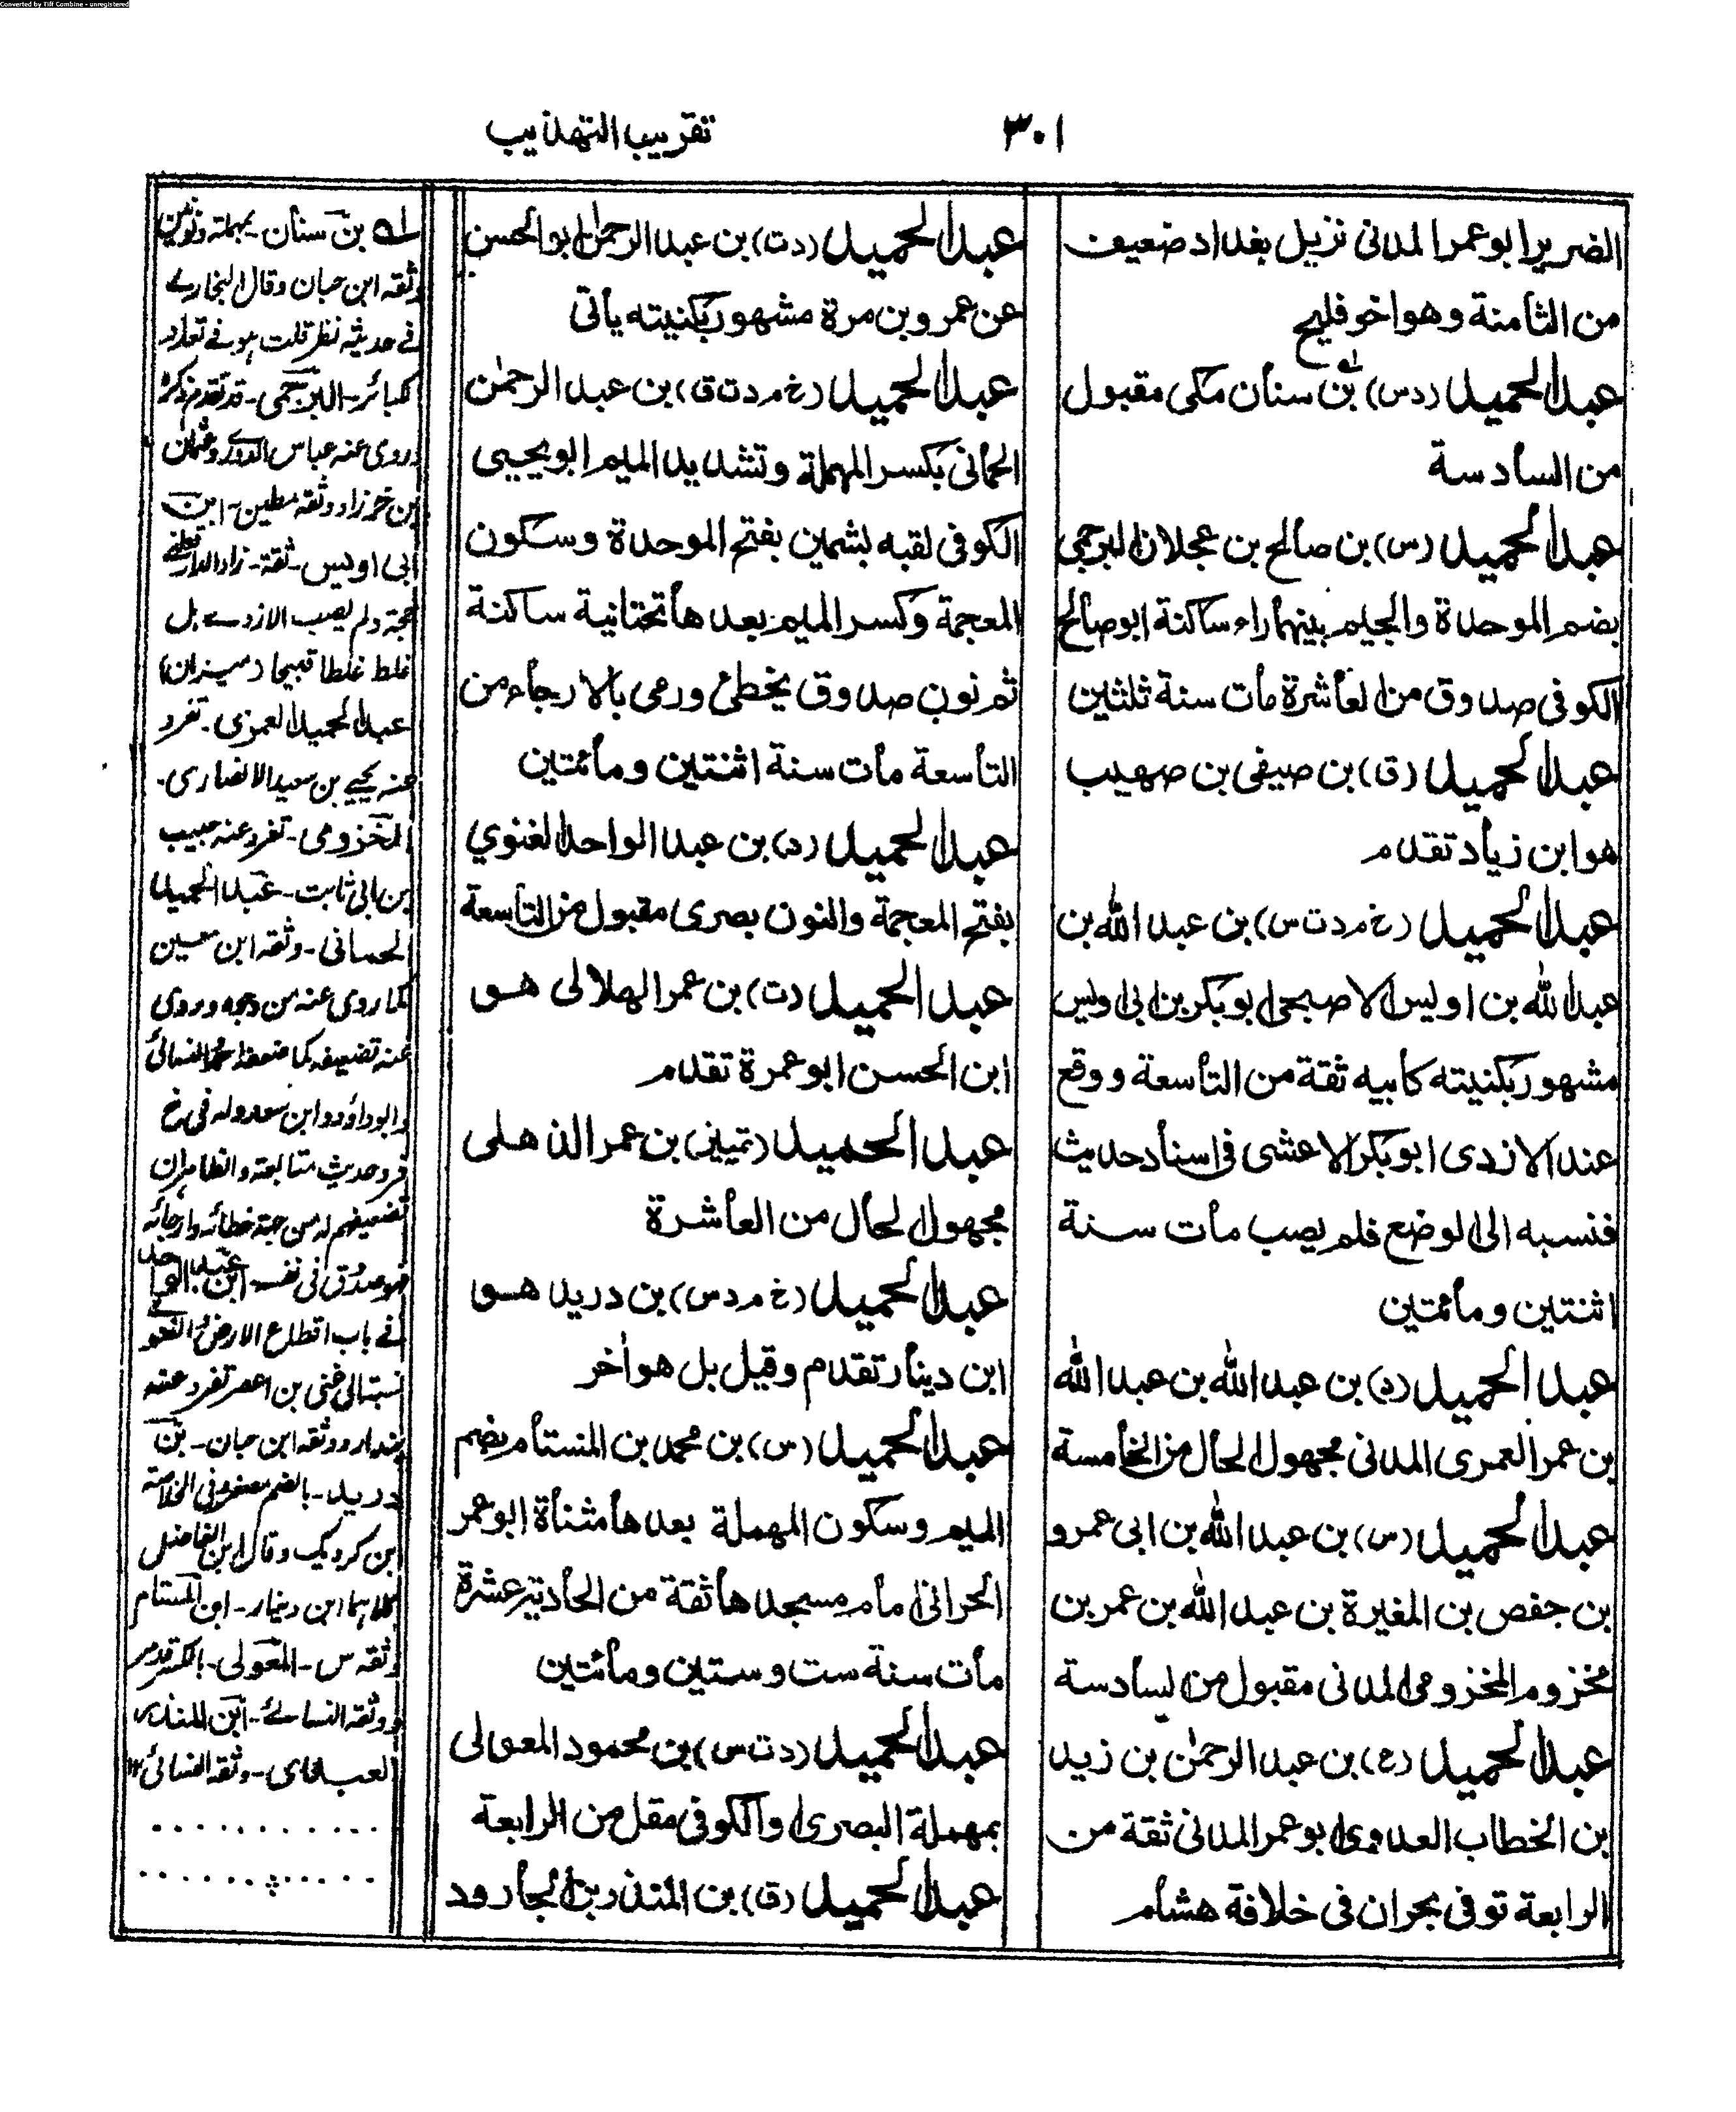 Converted by Tiff Combine - unregistered
٣٠١
تقريب التهذيب
الضرير ابو عمر المدنى نزيل بغداد ضعيف
من الثامنة وهو اخو فليح
عبد الحميد (دس) بن سنان مكى مقبول
من السادسة
عبد الحميد (س) بن صالح بن عجلان البرجمي
بضم الموحدة والجيم بينهما راء ساكنة ابو صالح
الكوفى صدوق من العاشرة مات سنة ثلثين
عبد الحميد (ق) بن صيفى بن صهيب
هو ابن زياد تقدم
عبد الحميد (خ م د ت س) بن عبد الله بن
عبد الله بن اويس الاصبحى ابو بكر بن ابى اويس
مشهور بكنيته كابيه ثقة من التاسعة ووقع
عند الازدى ابو بكر الاعشى فى اسناد حديث
فنسبه الى الوضع فلم يصب مات سنة
اثنتين ومائتين
عبد الحميد (د) بن عبد الله بن عبد الله
بن عمر العمرى المدنى مجهول الحال من الخامسة
عبد الحميد (س) بن عبد الله بن ابى عمرو
بن حفص بن المغيرة بن عبد الله بن عمر بن
مخزوم المخزومى المدنى مقبول من السادسة
عبد الحميد (ع) بن عبد الرحمٰن بن زيد
بن الخطاب العدوى ابو عمر المدنى ثقة من
الرابعة توفى بحران فى خلافة هشام
عبد الحميد (دت) بن عبد الرحمٰن ابو الحسن
عن عمرو بن مرة مشهور بكنيته يأتى
عبد الحميد (خ م د ت ق) بن عبد الرحمٰن
الحمانى بكسر المهملة وتشديد الميم ابو يحيى
الكوفى لقبه بشمين بفتح الموحدة وسكون
المعجمة وكسر الميم بعدها تحتانية ساكنة
ثم نون صدوق يخطئ ورمى بالارجاء من
التاسعة مات سنة اثنتين ومائتين
عبد الحميد (د) بن عبد الواحد الغنوي
بفتح المعجمة والنون بصرى مقبول من التاسعة
عبد الحميد (ت) بن عمر الهلالى هو
ابن الحسن ابو عمرة تقدم
عبد الحميد (تمييز) بن عمر الذهلى
مجهول الحال من العاشرة
عبد الحميد (خ م د س) بن دريد هو
ابن دينار تقدم وقيل بل هو اٰخر
عبد الحميد (س) بن محمد بن المنستام بضم
الميم وسكون المهملة بعدها مثناة ابو عمر
الحرانى امام مسجدها ثقة من الحادية عشرة
مات سنة ست وستين ومائتين
عبد الحميد (د ت س) بن محمود المعولى
بمهملة البصرى او الكوفى مقل من الرابعة
عبد الحميد (ق) بن المنذر بن الجارود
بن سنان - بمهملة ونونين
وثقه ابن حبان وقال البخارے
فے حديثه نظر قلت هو فے تعداد
كبائر - البرجمى - قد تقدم ذكره
وروى عنه عباس الدورى وعثمان
بن خرزاد ووثقه مطين - ابن
ابى اويس - ثقة - زاد الدارقطنے
حجة ولم يصب الازدے بل
غلط غلطا قبيحا (ميزان)
عبد الحميد العمرى - تفرد
عنه يحيے بن سعيد الانصارى -
المخزومى - تفرد عنه حبيب
بن ابى ثابت - عبد الحميد
الحمانى - وثقه ابن معين
كما روى عنه من وجه وروى
عنه تضعيفه كما ضعفه احمد والنسائى
وابو داؤد وابن سعد وله فى خ
فرد حديث متابعة والظاهر ان
تضعيفهم له من جهة خطائه وارجائه
فهو صدوق فى نفسه - ابن عبد الواحد
فے باب اقطاع الارض الغنوى
نسبة الى غنى بن اعصر تفرد عنه
بندار ووثقه ابن حبان - بن
دريد - بالضم مصغر وفى الخلاصة
ابن كرديك وقال ابن الفاضل
كلاهما ابن دينار - ابن المستام
وثقه س - المعولى - بالكسر تقدم
ووثقه النسائے - ابن المنذر
العبدى - وثقه النسائى ١٢